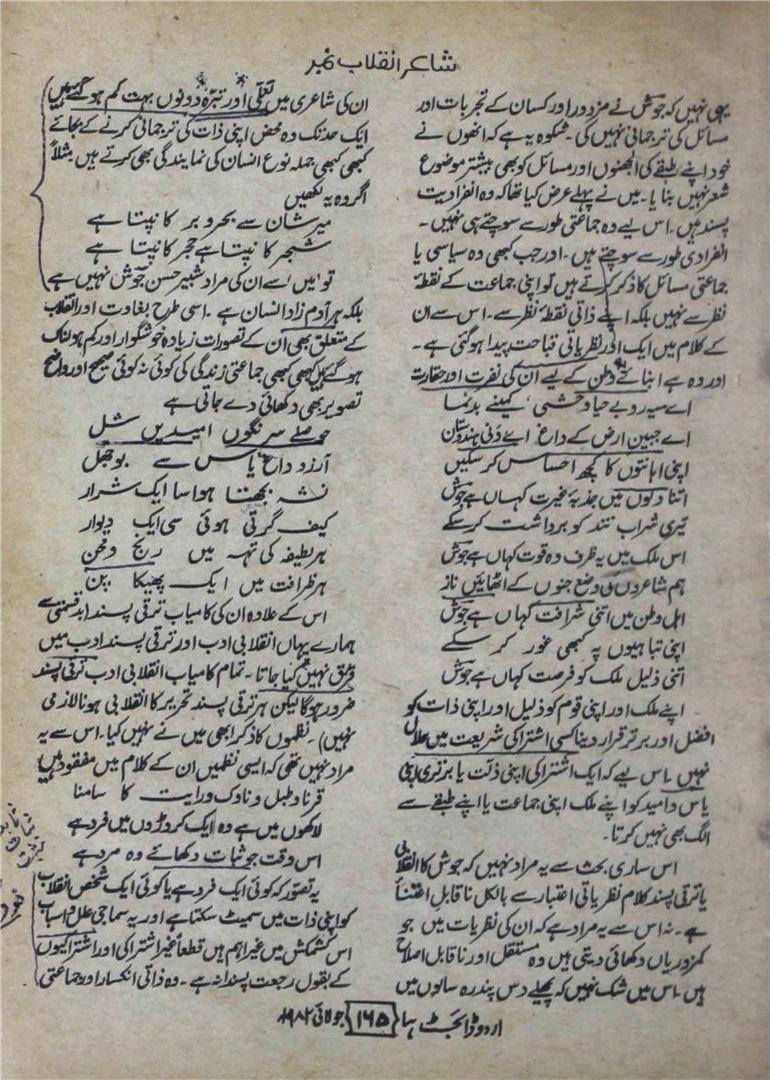 شاعر انقلاب نمبر
یہی نہیں کہ جوش نے مزدور اور کسان کے تجربات اور
مسائل کی ترجمانی نہیں کی۔ شکوہ یہ ہے کہ انھوں نے
خود اپنے طبقے کی الجھنوں اور مسائل کو بھی بیشتر موضوع
شعر نہیں بنایا۔ میں نے پہلے عرض کیا تھا کہ وہ انفرادیت
پسند ہیں۔ اس لیے وہ جماعتی طور سے سوچتے ہی نہیں۔
انفرادی طور سے سوچتے ہیں۔ اور جب کبھی وہ سیاسی یا
جماعتی مسائل کا ذکر کرتے ہیں تو اپنی جماعت کے نقطۂ
نظر سے نہیں بلکہ اپنے ذاتی نقطۂ نظر سے۔ اس سے ان
کے کلام میں ایک اور نظریاتی قباحت پیدا ہو گئی ہے۔
اور وہ ہے ابنائے وطن کے لیے ان کی نفرت اور حقارت
اے سیہ رو بے حیا وحشی، کمینے بدنما
اے جبین ارض کے داغ اے دَنی ہندوستان
اپنی اہانتوں کا کچھ احساس کر سکیں
اتنا دکوں میں جذبۂ غیرت کہاں ہے جوش
تیری شراب تند کو برداشت کر سکے
اس ملک میں یہ ظرف وہ قوت کہاں ہے جوش
ہم شاعروں کی وضع جنوں کے اٹھائیں ناز
اہل وطن میں اتنی شرافت کہاں ہے جوش
اپنی تباہیوں پہ کبھی غور کر سکے
اتنی ذلیل ملک کو فرصت کہاں ہے جوش
اپنے ملک اور اپنی قوم کو ذلیل اور اپنی ذات کو
افضل اور برتر قرار دینا کسی اشتراکی شریعت میں حلال
نہیں۔ اس لیے کہ ایک اشتراکی اپنی ذلت یا برتری اپنی
یاس و امید کو اپنے ملک اپنی جماعت یا اپنے طبقے سے
الگ بھی نہیں کرتا۔
اس ساری بحث سے یہ مراد نہیں کہ جوش کا انقلابی
یا ترقی پسند کلام نظریاتی اعتبار سے بالکل ناقابل اعتنا
ہے۔ نہ اس سے یہ مراد ہے کہ ان کی نظریات میں جو
کمزوریاں دکھائی دیتی ہیں وہ مستقل اور ناقابل اصلاح
ہیں۔ اس میں شک نہیں کہ پچھلے دس پندرہ سالوں میں
ان کی شاعری میں تعلّی اور تبرّہ دونوں بہت کم ہو گئے ہیں
ایک حد تک وہ محض اپنی ذات کی ترجمانی کرنے کے بجائے
کبھی کبھی جملہ نوع انسان کی نمائندگی بھی کرتے ہیں مثلاً
اگر وہ یہ لکھیں
میر شان سے بحر و بر کانپتا ہے
شجر کانپتا ہے حجر کانپتا ہے
تو 'میں' سے ان کی مراد شبیر حسن جوش نہیں ہے
بلکہ ہر آدم زاد انسان ہے۔ اسی طرح بغاوت اور انقلاب
کے متعلق بھی ان کے تصورات زیادہ خوشگوار اور کم ہولناک
ہو گئے ہیں کبھی کبھی جماعتی زندگی کی کوئی نہ کوئی صحیح اور واضح
تصویر بھی دکھائی دے جاتی ہے
حوصلے سرنگوں امیدیں شل
آرزو داغ یاس سے بوجھل
نشہ بجھتا ہوا سا ایک شرار
کیف گرتی ہوئی سی ایک دیوار
ہر لطیفہ کی تہہ میں رنج و محن
ہر ظرافت میں ایک پھیکا پن
اس کے علاوہ ان کی کامیاب ترقی پسند (بدقسمتی سے
ہمارے یہاں انقلابی ادب اور ترقی پسند ادب میں
فرق نہیں کیا جاتا۔ تمام کامیاب انقلابی ادب ترقی پسند
ضرور ہوگا لیکن ہر ترقی پسند تحریر کا انقلابی ہونا لازمی
نہیں)۔ نظموں کا ذکر ابھی میں نے نہیں کیا۔ اس سے یہ
مراد نہیں تھی کہ ایسی نظمیں ان کے کلام میں مفقود ہیں
قرنا و طبل و ناوک و رایت کا سامنا
لاکھوں میں ہے وہ ایک کروڑوں میں فرد ہے
اس وقت جو ثبات دکھائے وہ مرد ہے
یہ تصور کہ کوئی ایک فرد ہے یا کوئی ایک شخص انقلاب
کو اپنی ذات میں سمیٹ سکتا ہے اور یہ سماجی علل اسباب
اس کشمکش میں غیر اہم ہیں قطعاً غیر اشتراکی اور اشتراکیوں
کے بقول رجعت پسندانہ ہے۔ وہ ذاتی انکسار اور جماعتی
اردو ڈائجسٹ ہما ۱۶۵ جولائی ۱۹۸۲ء